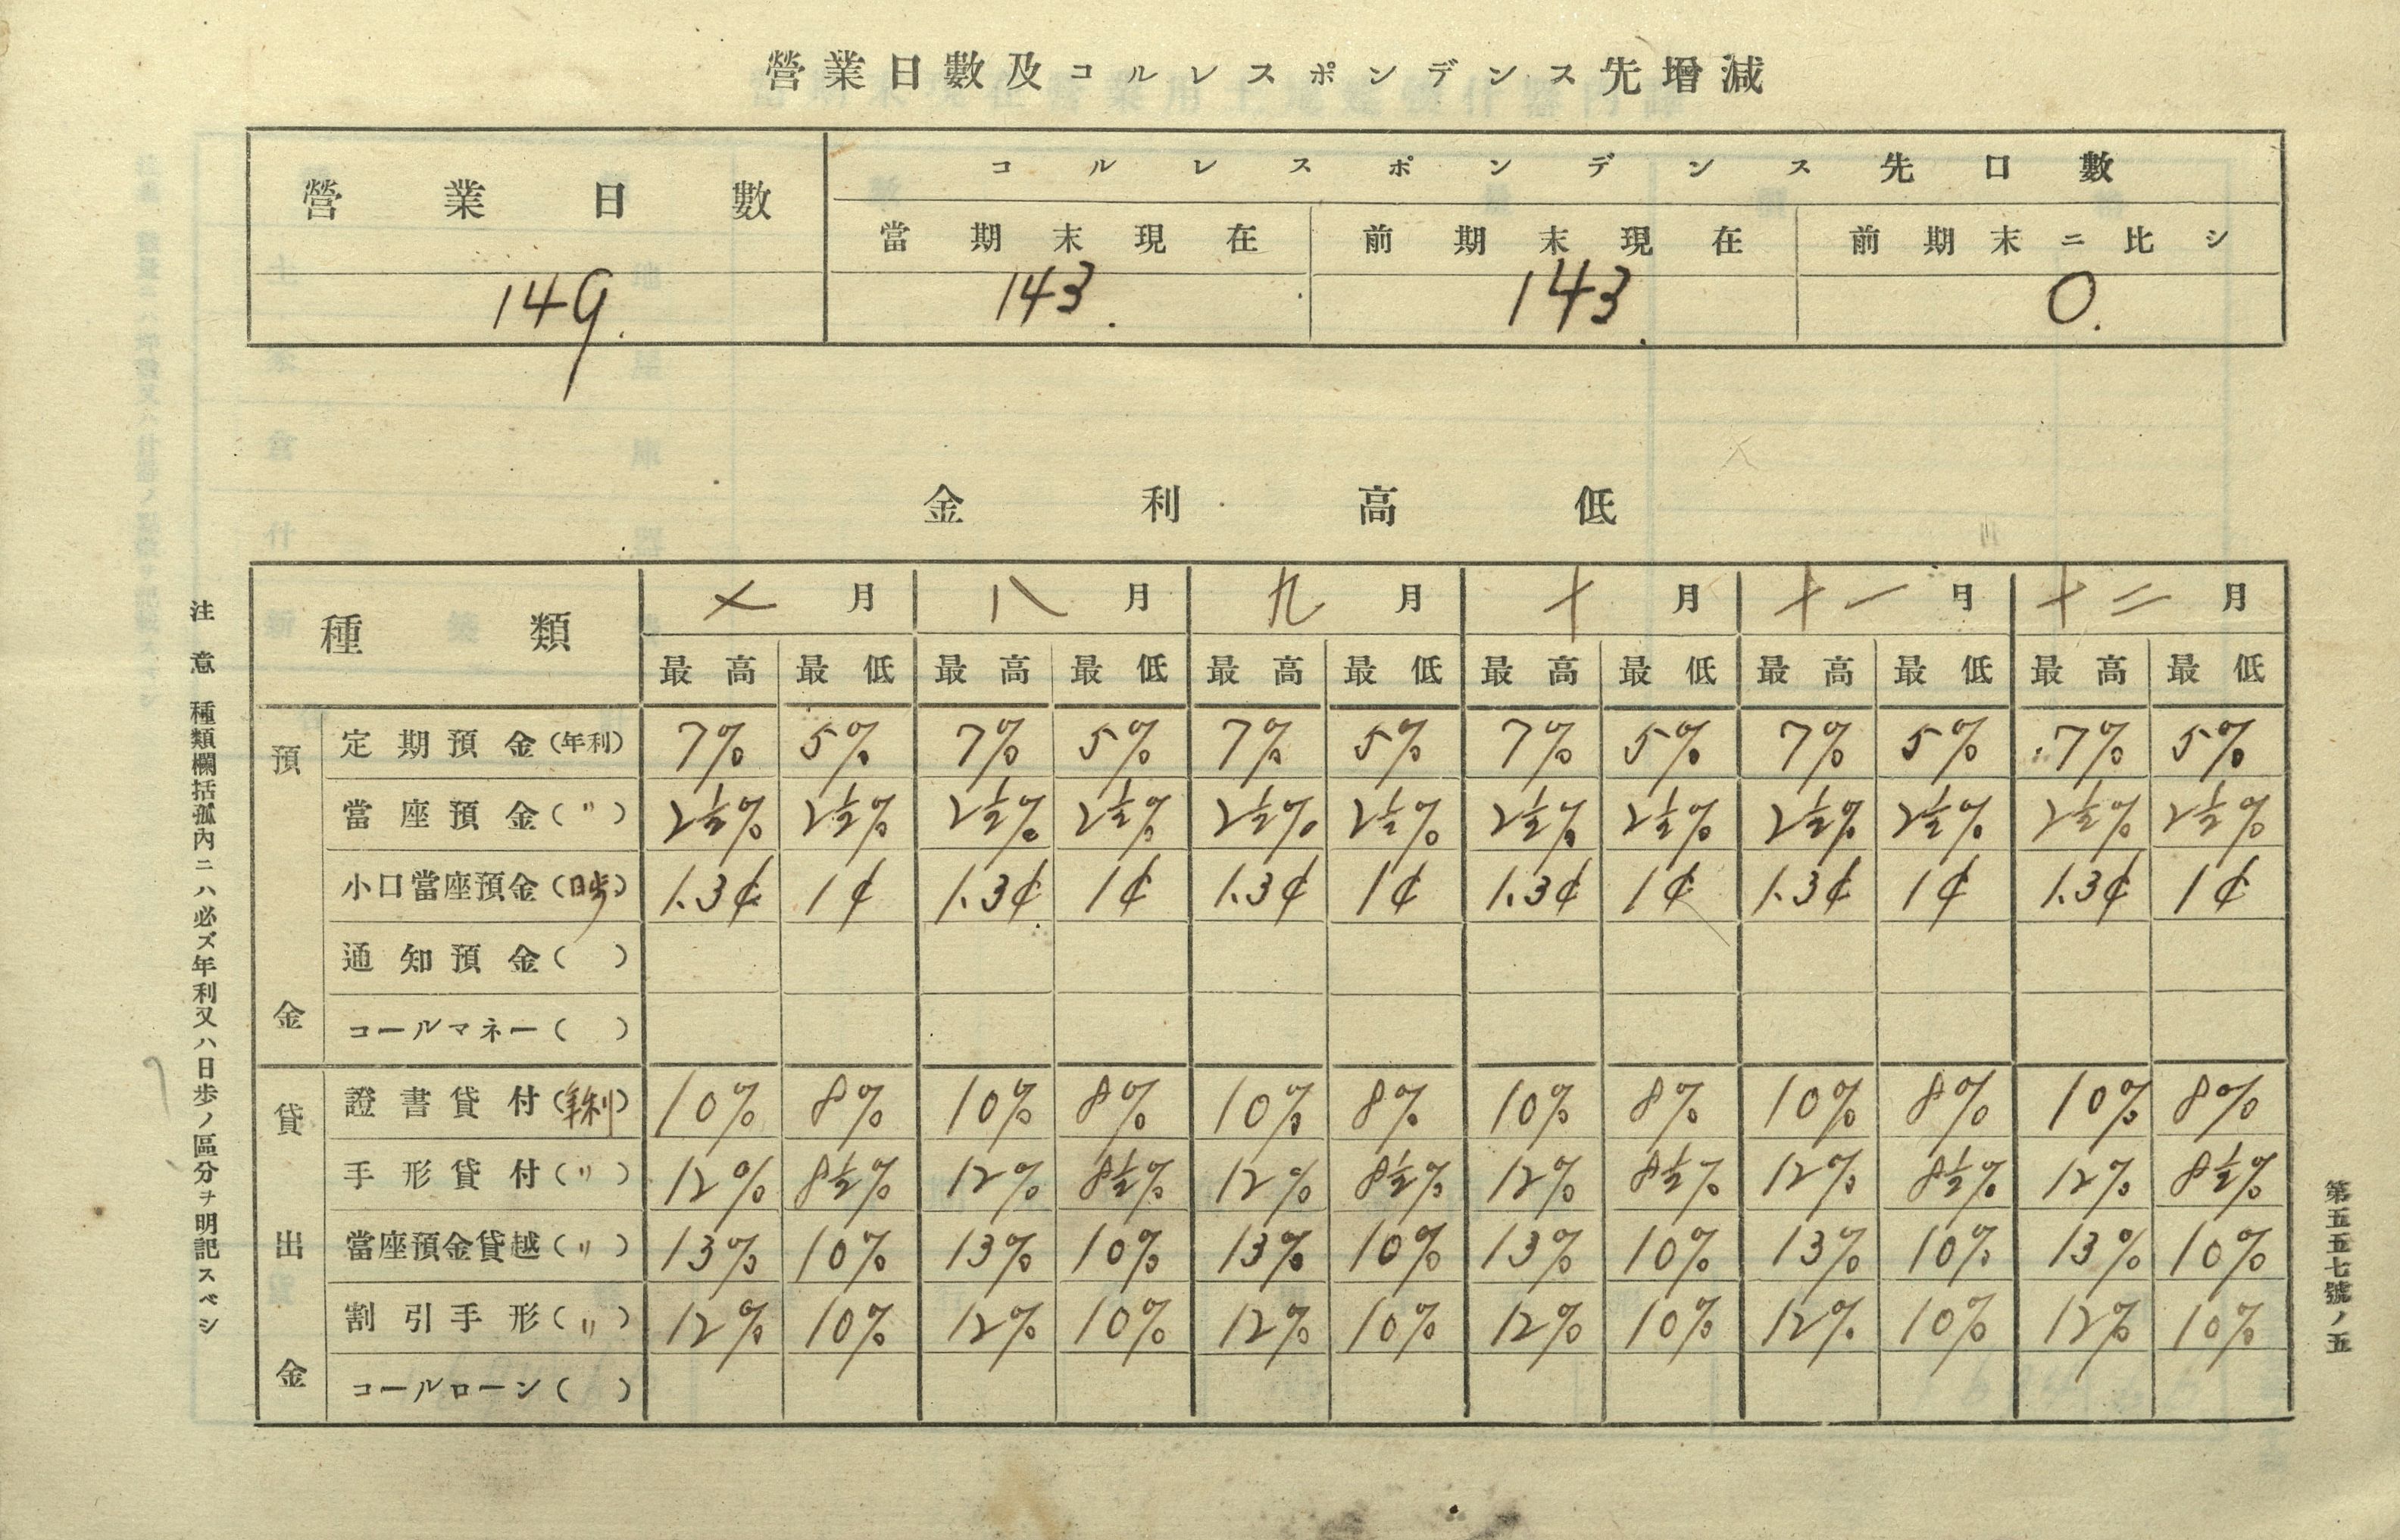 營業日數及コルレスポンデンス先增減
營業日數 コルレスポンデンス先口數
當期末現在 前期末現在 前期末ニ比シ
149. 143. 143. 0.
金利高低
種類 七月 八月 九月 十月 十一月 十二月
最高 最低 最高 最低 最高 最低 最高 最低 最高 最低 最高 最低
預金
定期預金(年利) 7% 5% 7% 5% 7% 5% 7% 5% 7% 5% 7% 5%
當座預金(〃) 2½% 2½% 2½% 2½% 2½% 2½% 2½% 2½% 2½% 2½% 2½% 2½%
小口當座預金(日歩) 1.3¢ 1¢ 1.3¢ 1¢ 1.3¢ 1¢ 1.3¢ 1¢ 1.3¢ 1¢ 1.3¢ 1¢
通知預金( )
コールマネー( )
貸出金
證書貸付(年利) 10% 8% 10% 8% 10% 8% 10% 8% 10% 8% 10% 8%
手形貸付(〃) 12% 8½% 12% 8½% 12% 8½% 12% 8½% 12% 8½% 12% 8½%
當座預金貸越(〃) 13% 10% 13% 10% 13% 10% 13% 10% 13% 10% 13% 10%
割引手形(〃) 12% 10% 12% 10% 12% 10% 12% 10% 12% 10% 12% 10%
コールローン( )
注意 種類欄括孤內ニハ必ズ年利又ハ日歩ノ區分ヲ明記スベシ
第五五七號ノ五